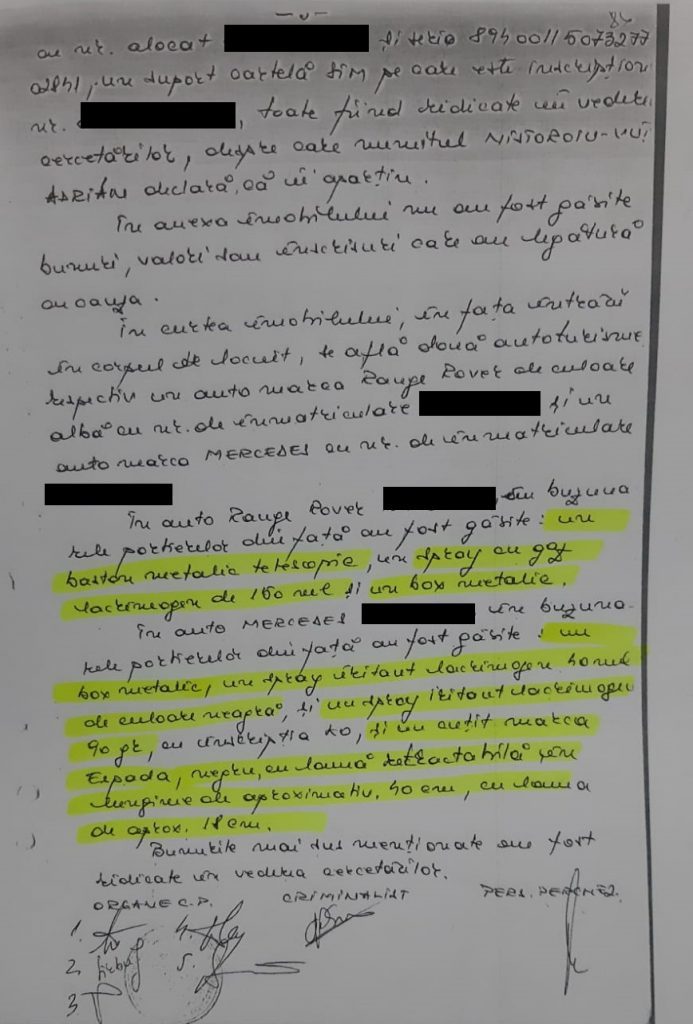 - v -
84
cu nr. alocat și serie 89400115073277
02841, un suport cartelă SIM pe care este inscripționat
nr. , toate fiind ridicate în vederea
cercetărilor, despre care numitul NISTOROIU-VUȚĂ
ADRIAN declară că îi aparțin.
În anexa imobilului nu au fost găsite
bunuri, valori sau înscrisuri care au legătură
cu cauza.
În curtea imobilului, în fața intrării
în corpul de locuit, se află două autoturisme
respectiv un auto marca Range Rover de culoare
albă cu nr. de înmatriculare și un
auto marca MERCEDES cu nr. de înmatriculare
În auto Range Rover , în buzuna
rele portierelor din față au fost găsite: un
baston metalic telescopic, un spray cu gaz
lacrimogen de 160 ml și un box metalic.
În auto MERCEDES în buzuna-
rele portierelor din față au fost găsite: un
box metalic, un spray iritant lacrimogen 40 ml
de culoare neagră, și un spray iritant lacrimogen
90 gr, cu inscripția KO, și un cuțit marca
Espada, negru, cu lamă retractabilă în
lungime de aproximativ. 40 cm, cu lama
de aprox. 18 cm.
Bunurile mai sus menționate au fost
ridicate în vederea cercetărilor.
ORGANE C.P. CRIMINALIST PERS. PERCHEZ.
1. 4.
2. 5.
3